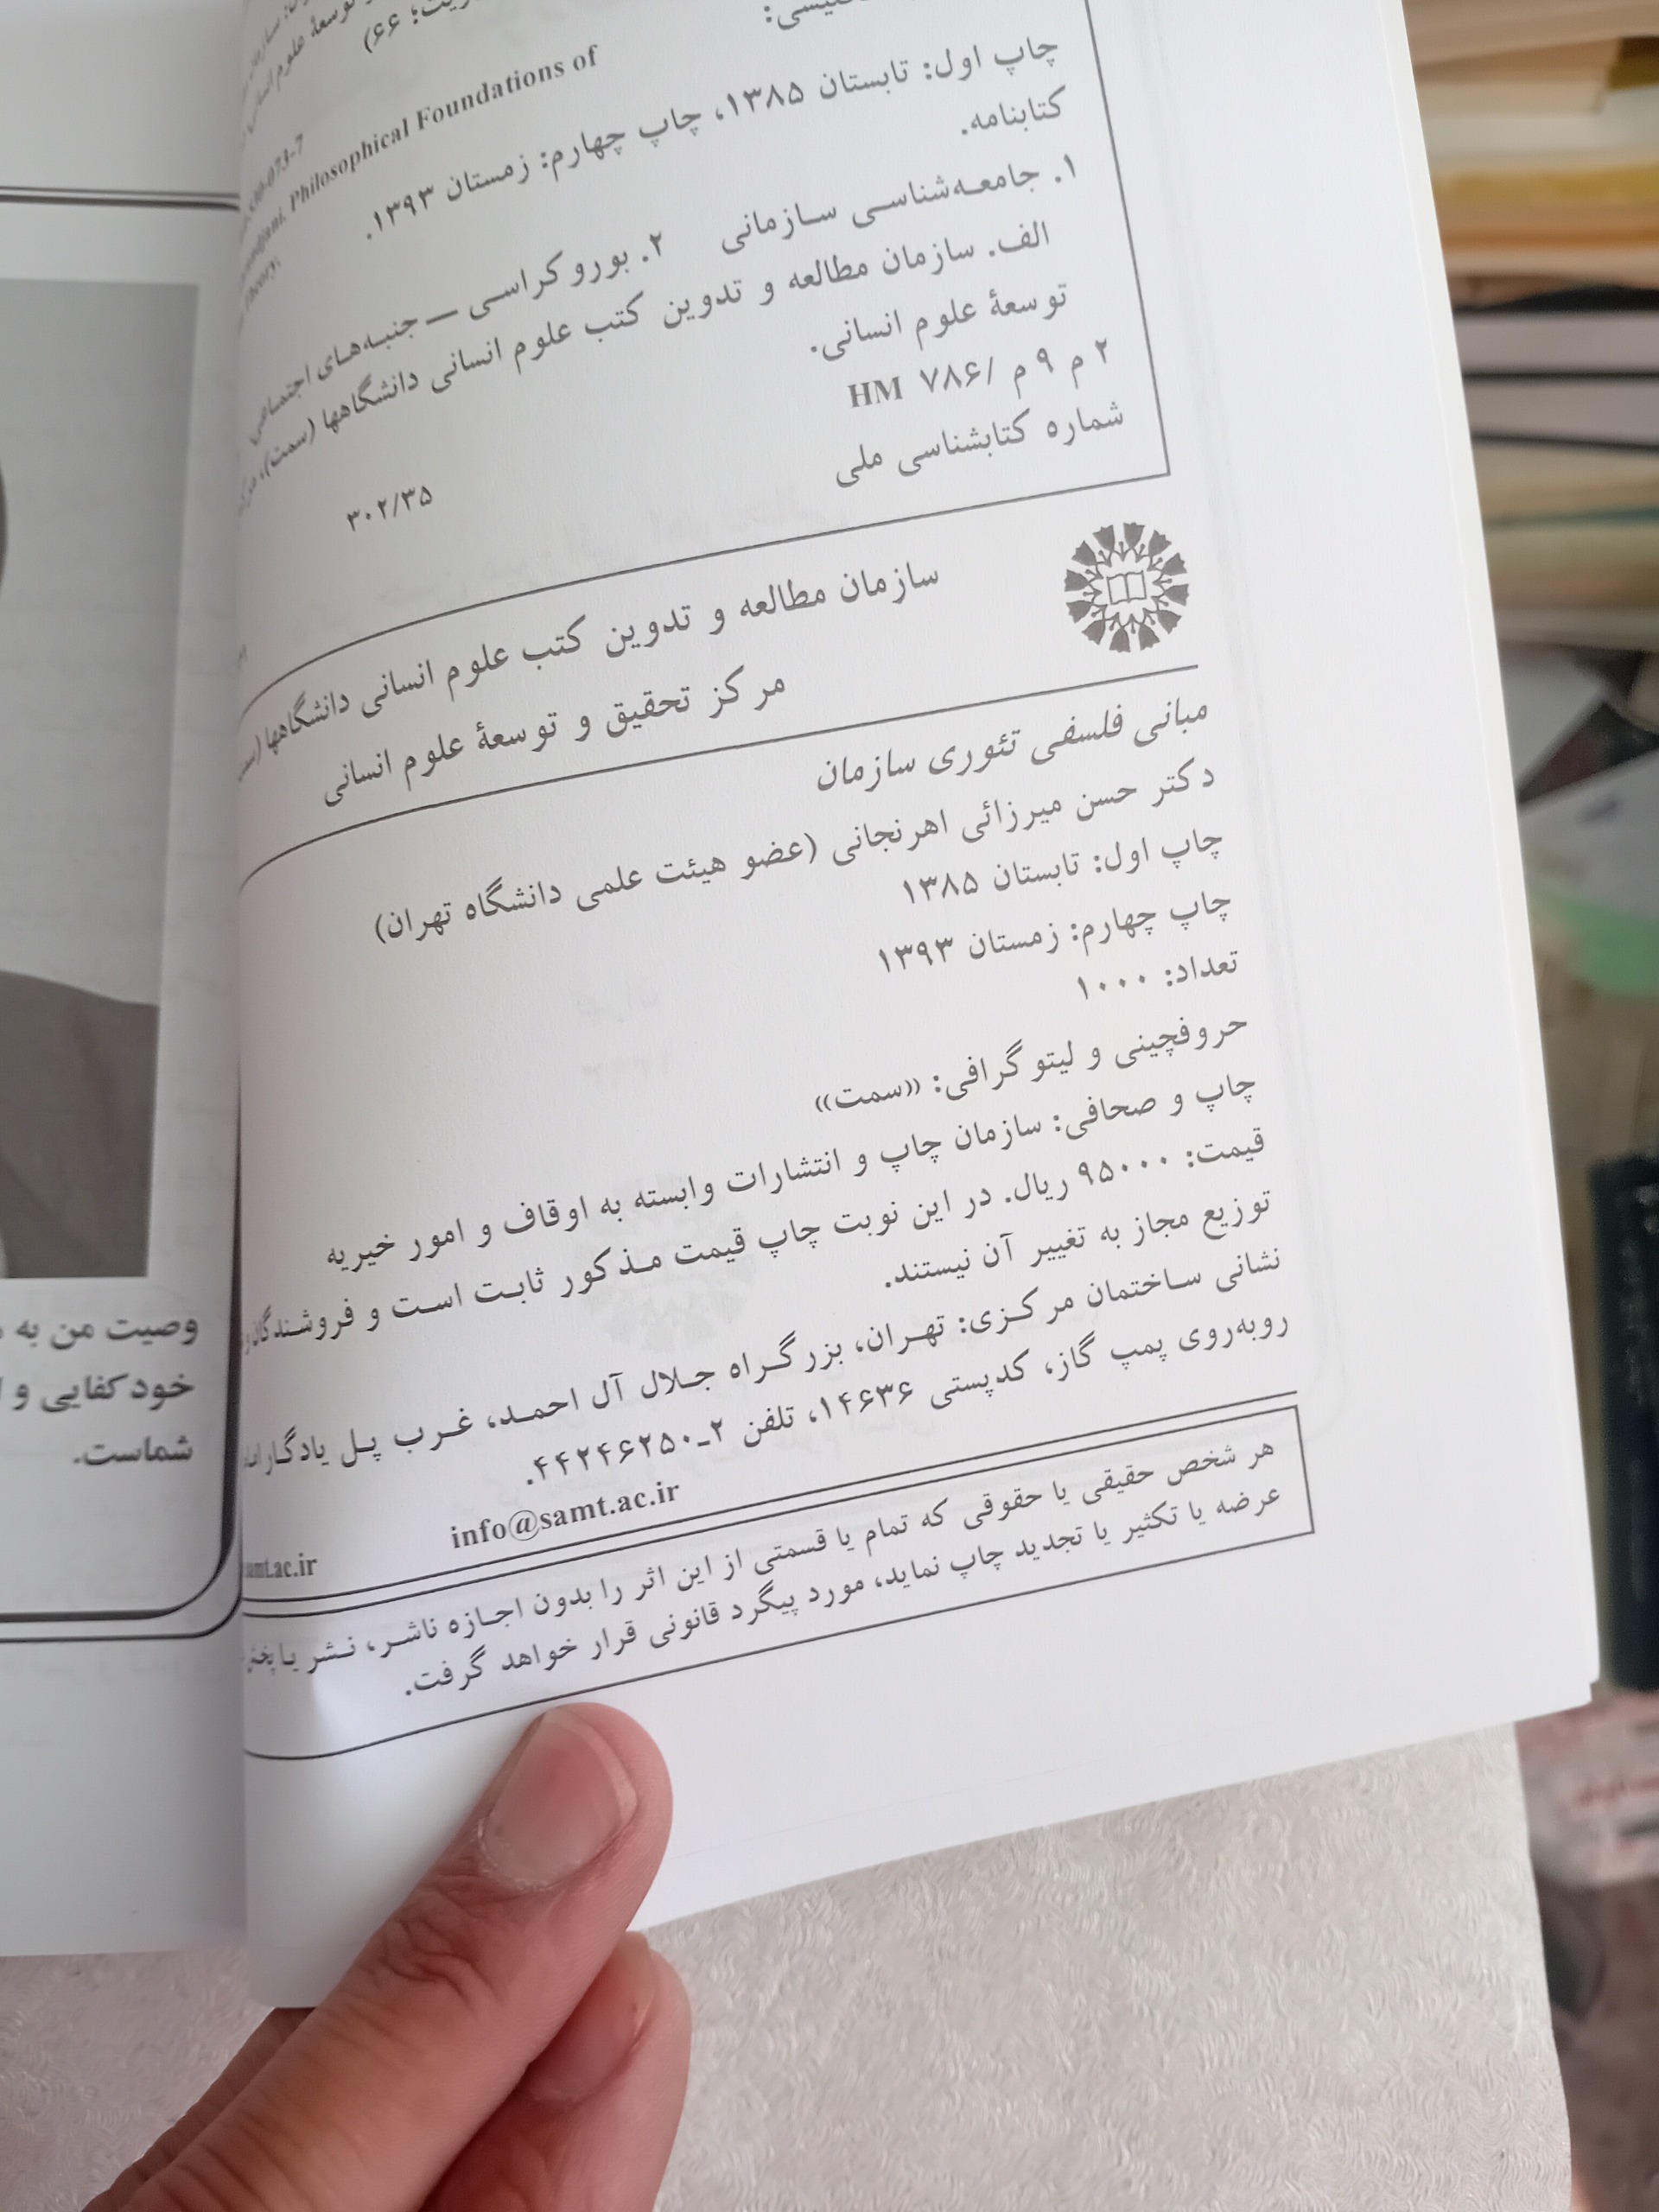 ۶۶)
Philosophical Foundations of
چاپ اول: تابستان ۱۳۸۵، چاپ چهارم: زمستان ۱۳۹۳.
کتابنامه.
۱. جامعه‌شناسی سازمانی ۲. بوروکراسی — جنبه‌های اجتماعی
الف. سازمان مطالعه و تدوین کتب علوم انسانی دانشگاهها (سمت)،
توسعۀ علوم انسانی.
۲ م ۹ م /۷۸۶ HM
۳۰۲/۳۵
شماره کتابشناسی ملی
سازمان مطالعه و تدوین کتب علوم انسانی دانشگاهها
مرکز تحقیق و توسعۀ علوم انسانی
مبانی فلسفی تئوری سازمان
دکتر حسن میرزائی اهرنجانی (عضو هیئت علمی دانشگاه تهران)
چاپ اول: تابستان ۱۳۸۵
چاپ چهارم: زمستان ۱۳۹۳
تعداد: ۱۰۰۰
حروفچینی و لیتوگرافی: «سمت»
چاپ و صحافی: سازمان چاپ و انتشارات وابسته به اوقاف و امور خیریه
قیمت: ۹۵۰۰۰ ریال. در این نوبت چاپ قیمت مذکور ثابت است و فروشندگان
توزیع مجاز به تغییر آن نیستند.
نشانی ساختمان مرکزی: تهران، بزرگراه جلال آل احمد، غرب پل یادگار
روبه‌روی پمپ گاز، کدپستی ۱۴۶۳۶، تلفن ۲-۴۴۲۴۶۲۵۰.
info@samt.ac.ir
samt.ac.ir
هر شخص حقیقی یا حقوقی که تمام یا قسمتی از این اثر را بدون اجازه ناشر، نشر یا پخش
عرضه یا تکثیر یا تجدید چاپ نماید، مورد پیگرد قانونی قرار خواهد گرفت.
وصیت من به
خودکفایی و
شماست.